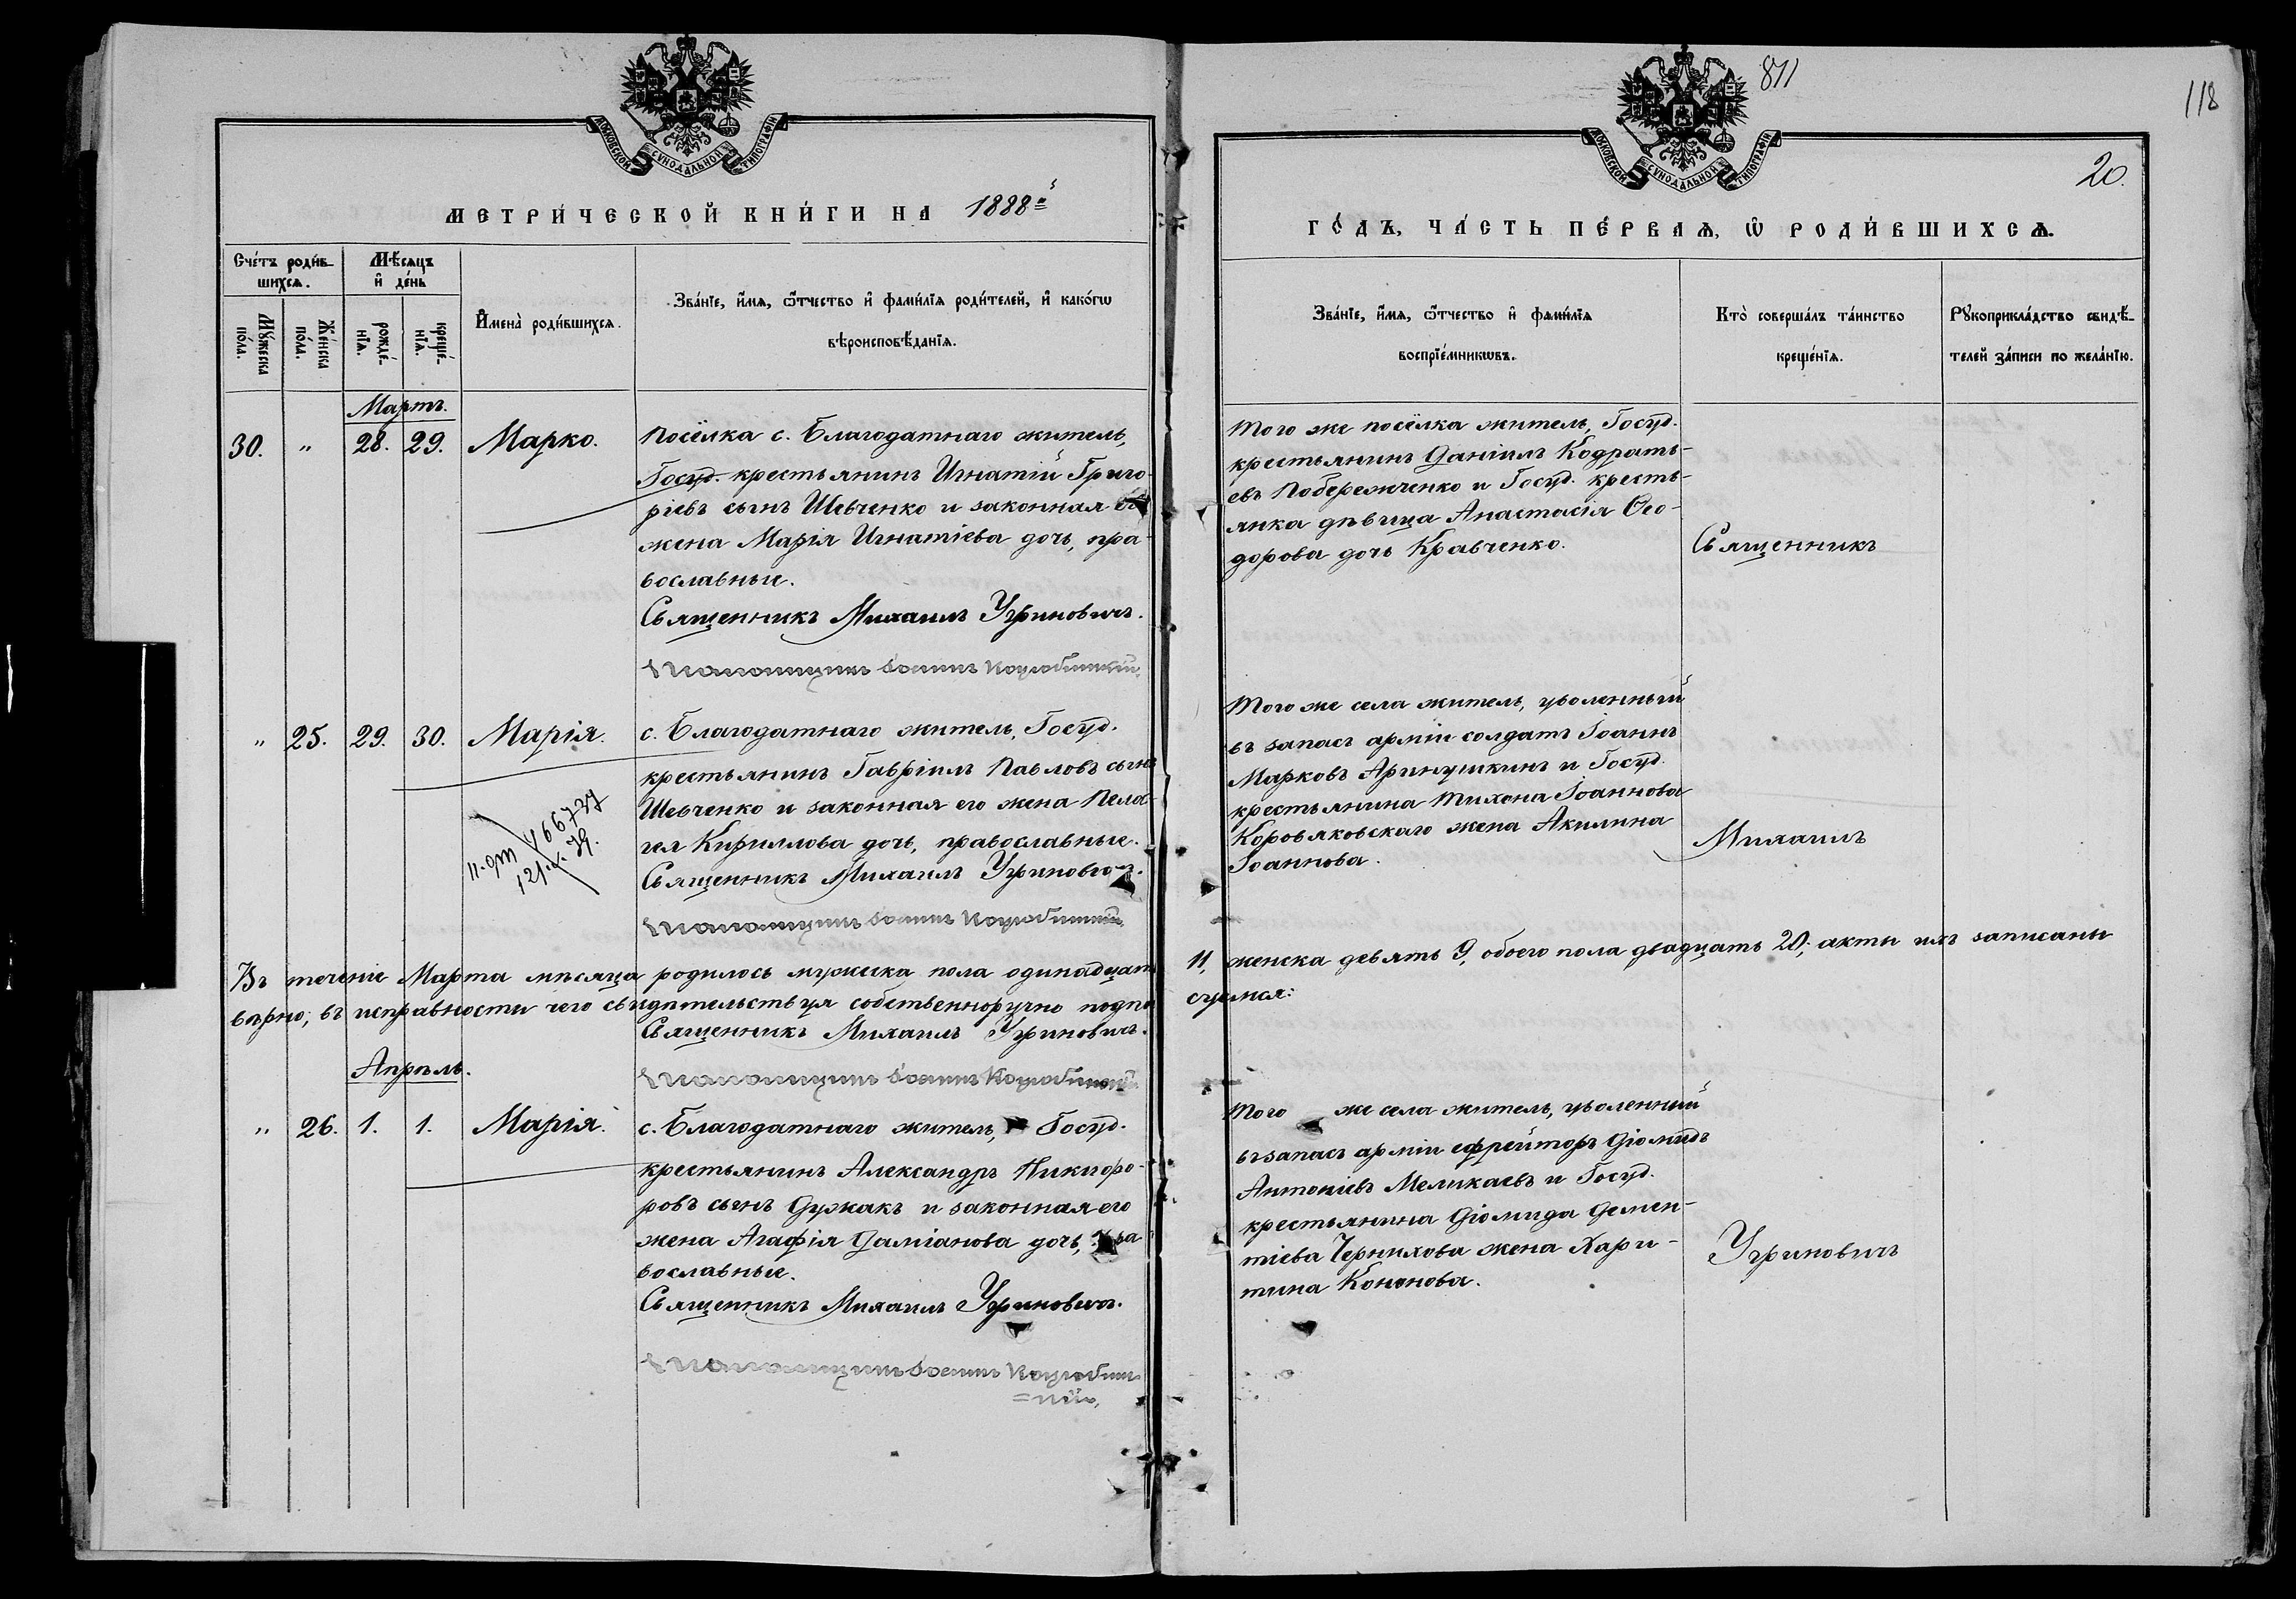 МОСКОВСКОЙ СУНОДАЛЬНОЙ ТИПОГРАФІИ
МЕТРИ́ЧЕСКОЙ КНИ́ГИ НА 1888й
Сче́тъ роди́вшихся.
Мѣ́сяцъ и҆ де́нь
Мꙋ́жеска по́ла.
Же́нска по́ла.
рожде́нїя.
креще́нїя.
И҆мена̀ роди́вшихся.
Зва́нїе, и҆́мя, ѻ҆́тчество и҆ фами́лїя роди́телей, и҆ како́гѡ
вѣроисповѣ́данїя.
Мартъ.
30. " 28. 29. Марко.
Посёлка с. Благодатнаго житель,
Госуд. крестьянинъ Игнатій Григо-
ріевъ сынъ Шевченко и законная его
жена Марія Игнатіева дочь, пра-
вославные.
Священникъ Михаилъ Угриновичъ.
Псаломщикъ Іоаннъ
" 25. 29. 30. Марія.
с. Благодатнаго житель, Госуд.
крестьянинъ Гавріилъ Павловъ сынъ
Шевченко и законная его жена Пела-
гея Кириллова дочь, православные.
Священникъ Михаилъ Угриновичъ.
Псаломщикъ Іоаннъ
Въ теченіе Марта мѣсяца родилось мужеска пола одинадцать 11, женска девять 9, обоего пола двадцать 20; акты ихъ записаны
вѣрно; въ исправности чего свидѣтельствуя собственноручно подписуемся:
Священникъ Михаилъ Угриновичъ.
Псаломщикъ Іоаннъ
Апрѣль.
" 26. 1. 1. Марія.
с. Благодатнаго житель, Госуд.
крестьянинъ Александръ Никифо-
ровъ сынъ Дужакъ и законная его
жена Агафія Даміанова дочь, пра-
вославные.
Священникъ Михаилъ Угриновичъ.
Псаломщикъ Іоаннъ
871
118
20.
МОСКОВСКОЙ СУНОДАЛЬНОЙ ТИПОГРАФІИ
ГО́ДЪ, ЧА́СТЬ ПЕ́РВАЯ, Ѡ҆ РОДИ́ВШИХСЯ.
Зва́нїе, и҆́мя, ѻ҆́тчество и҆ фами́лїя
воспрїе́мникѡвъ.
Кто̀ соверша́лъ та́инство
креще́нїя.
Рꙋкоприкла́дство свидѣ́-
телей за́писи по жела́нїю.
Того же посёлка житель, Госуд.
крестьянинъ Даніилъ Кодрать-
евъ Побережченко и Госуд. кресть-
янка дѣвица Анастасія Ѳео-
дорова дочь Кравченко.
Священникъ
Того же села житель, уволенный
въ запасъ арміи солдатъ Іоаннъ
Марковъ Аринушкинъ и Госуд.
крестьянина Тихона Іоаннова
Коровяковскаго жена Акилина
Іоаннова.
Михаилъ
Того же села житель, уволенный
въ запасъ арміи ефрейторъ Діомидъ
Антоніевъ Меликаевъ и Госуд.
крестьянина Діомида Демен-
тіева Чернихова жена Хари-
тина Кононова.
Угриновичъ